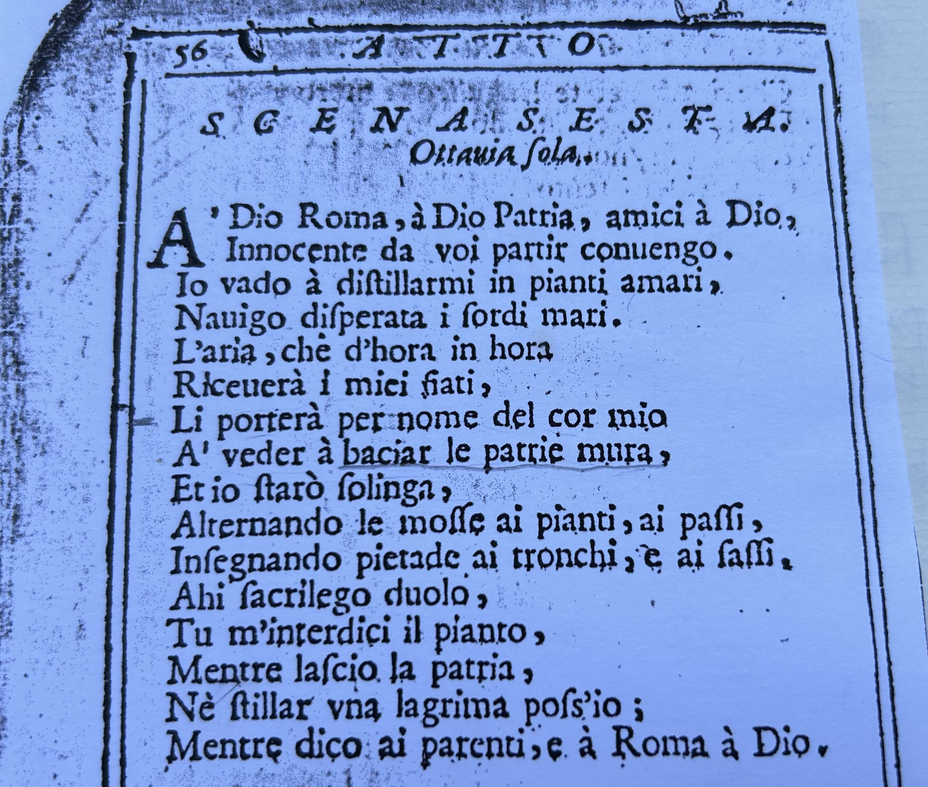 56 ATTO
SCENA SESTA.
Ottauia ſola.
A' Dio Roma, à Dio Patria, amici à Dio,
Innocente da voi partir conuengo.
Io vado à diſtillarmi in pianti amari,
Nauigo diſperata i ſordi mari.
L'aria, che d'hora in hora
Riceuerà i miei fiati,
Li porterà per nome del cor mio
A' veder à baciar le patrie mura,
Et io ſtarò ſolinga,
Alternando le moſſe ai pianti, ai paſſi,
Inſegnando pietade ai tronchi, e ai ſaſſi.
Ahi ſacrilego duolo,
Tu m'interdici il pianto,
Mentre laſcio la patria,
Nè ſtillar vna lagrima poſs'io;
Mentre dico ai parenti, e à Roma à Dio.